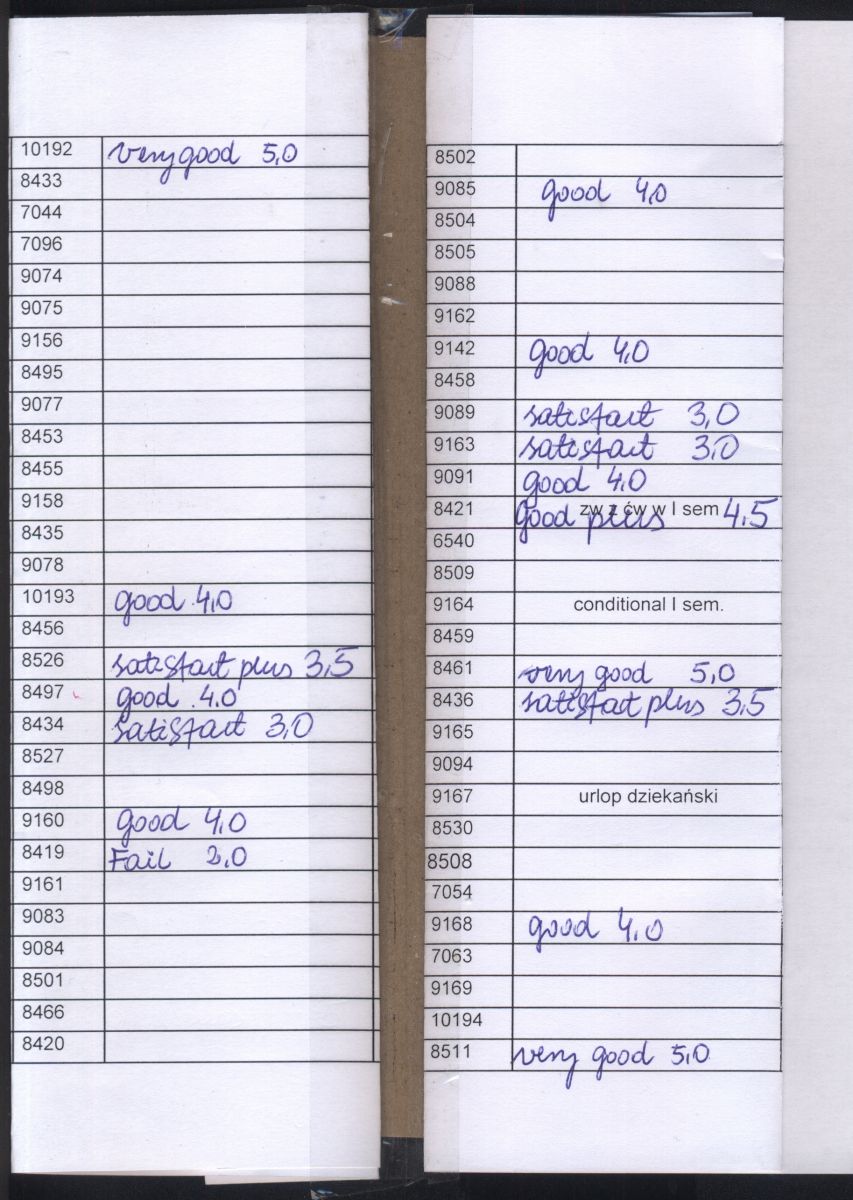 10192 very good 5,0
8433
7044
7096
9074
9075
9156
8495
9077
8453
8455
9158
8435
9078
10193 good 4,0
8456
8526 satisfact plus 3,5
8497 good 4,0
8434 satisfact 3,0
8527
8498
9160 good 4,0
8419 Fail 2,0
9161
9083
9084
8501
8466
8420
8502
9085 good 4,0
8504
8505
9088
9162
9142 good 4,0
8458
9089 satisfact 3,0
9163 satisfact 3,0
9091 good 4,0
8421 zw z ćw w I sem good plus 4,5
6540
8509
9164 conditional I sem.
8459
8461 very good 5,0
8436 satisfact plus 3,5
9165
9094
9167 urlop dziekański
8530
8508
7054
9168 good 4,0
7063
9169
10194
8511 very good 5,0